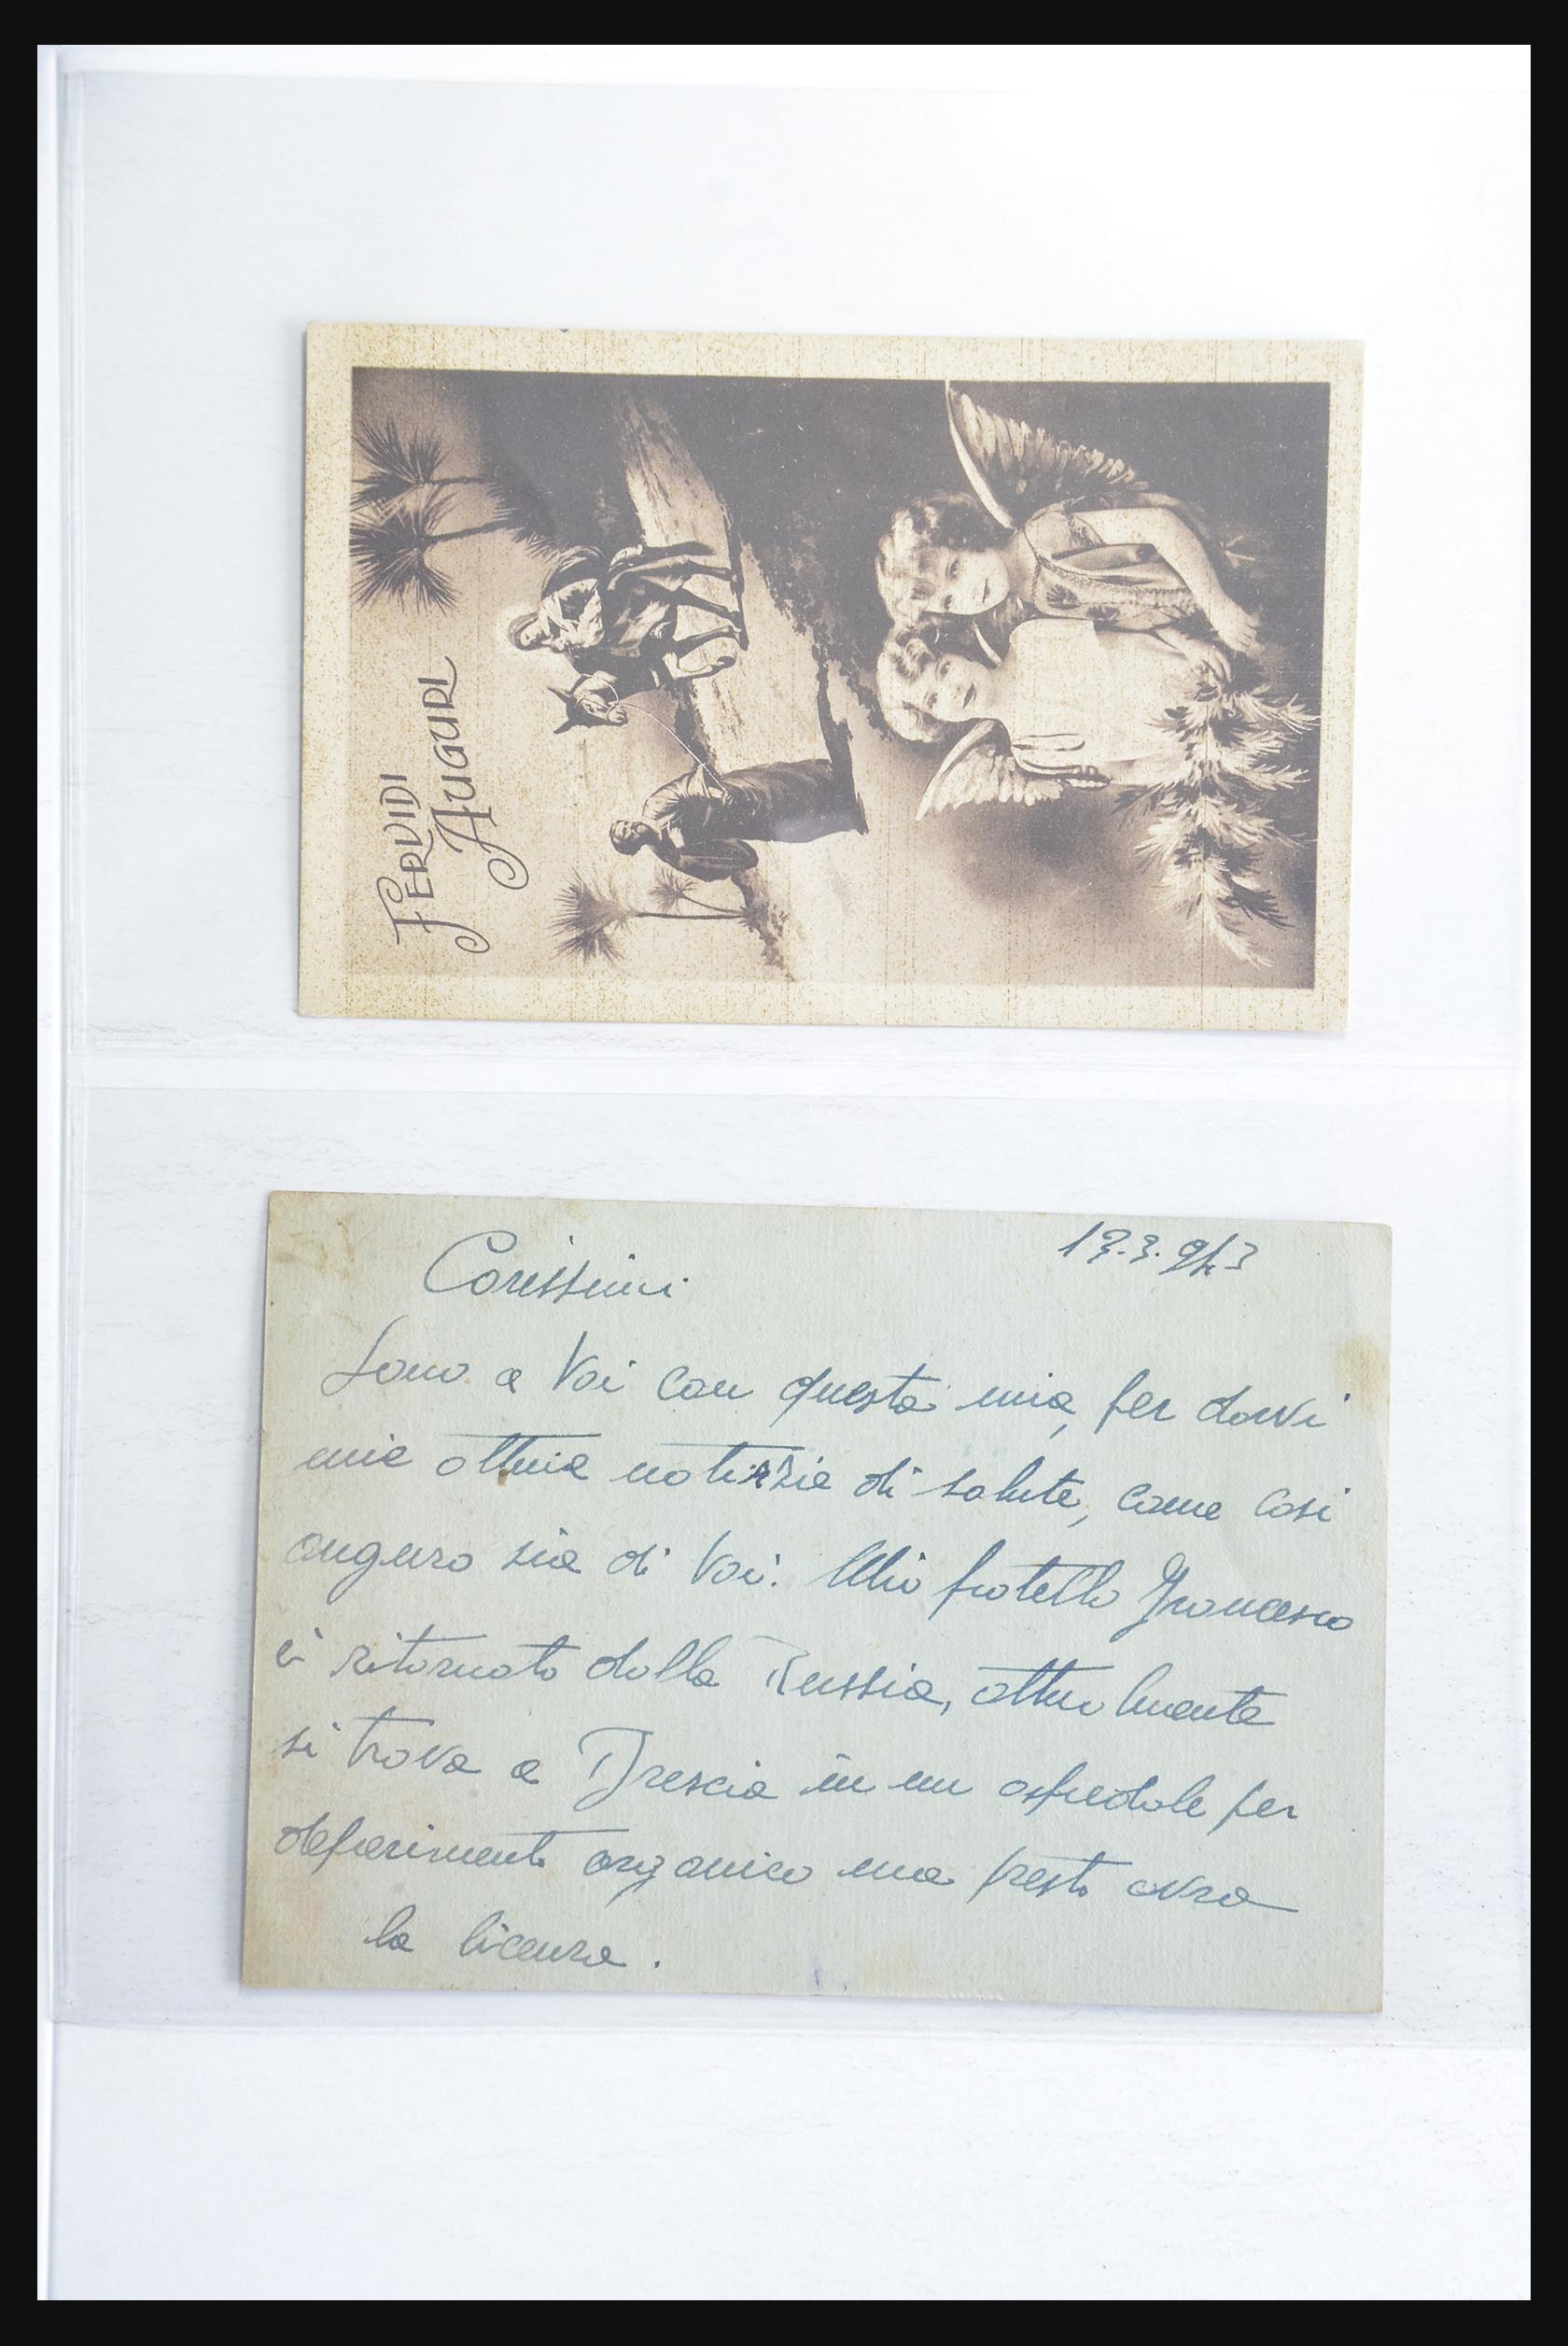 FERVIDI
AUGURI
13.3.943
Carissimi
Sono a Voi con questa mia, per darvi
mie ottime notizzie di salute, come così
auguro sia di Voi. Mio fratello Francesco
è ritornato dalla Russia, attualmente
si trova a Brescia in un ospedale per
deperimento organico ma presto avra
la licenza.